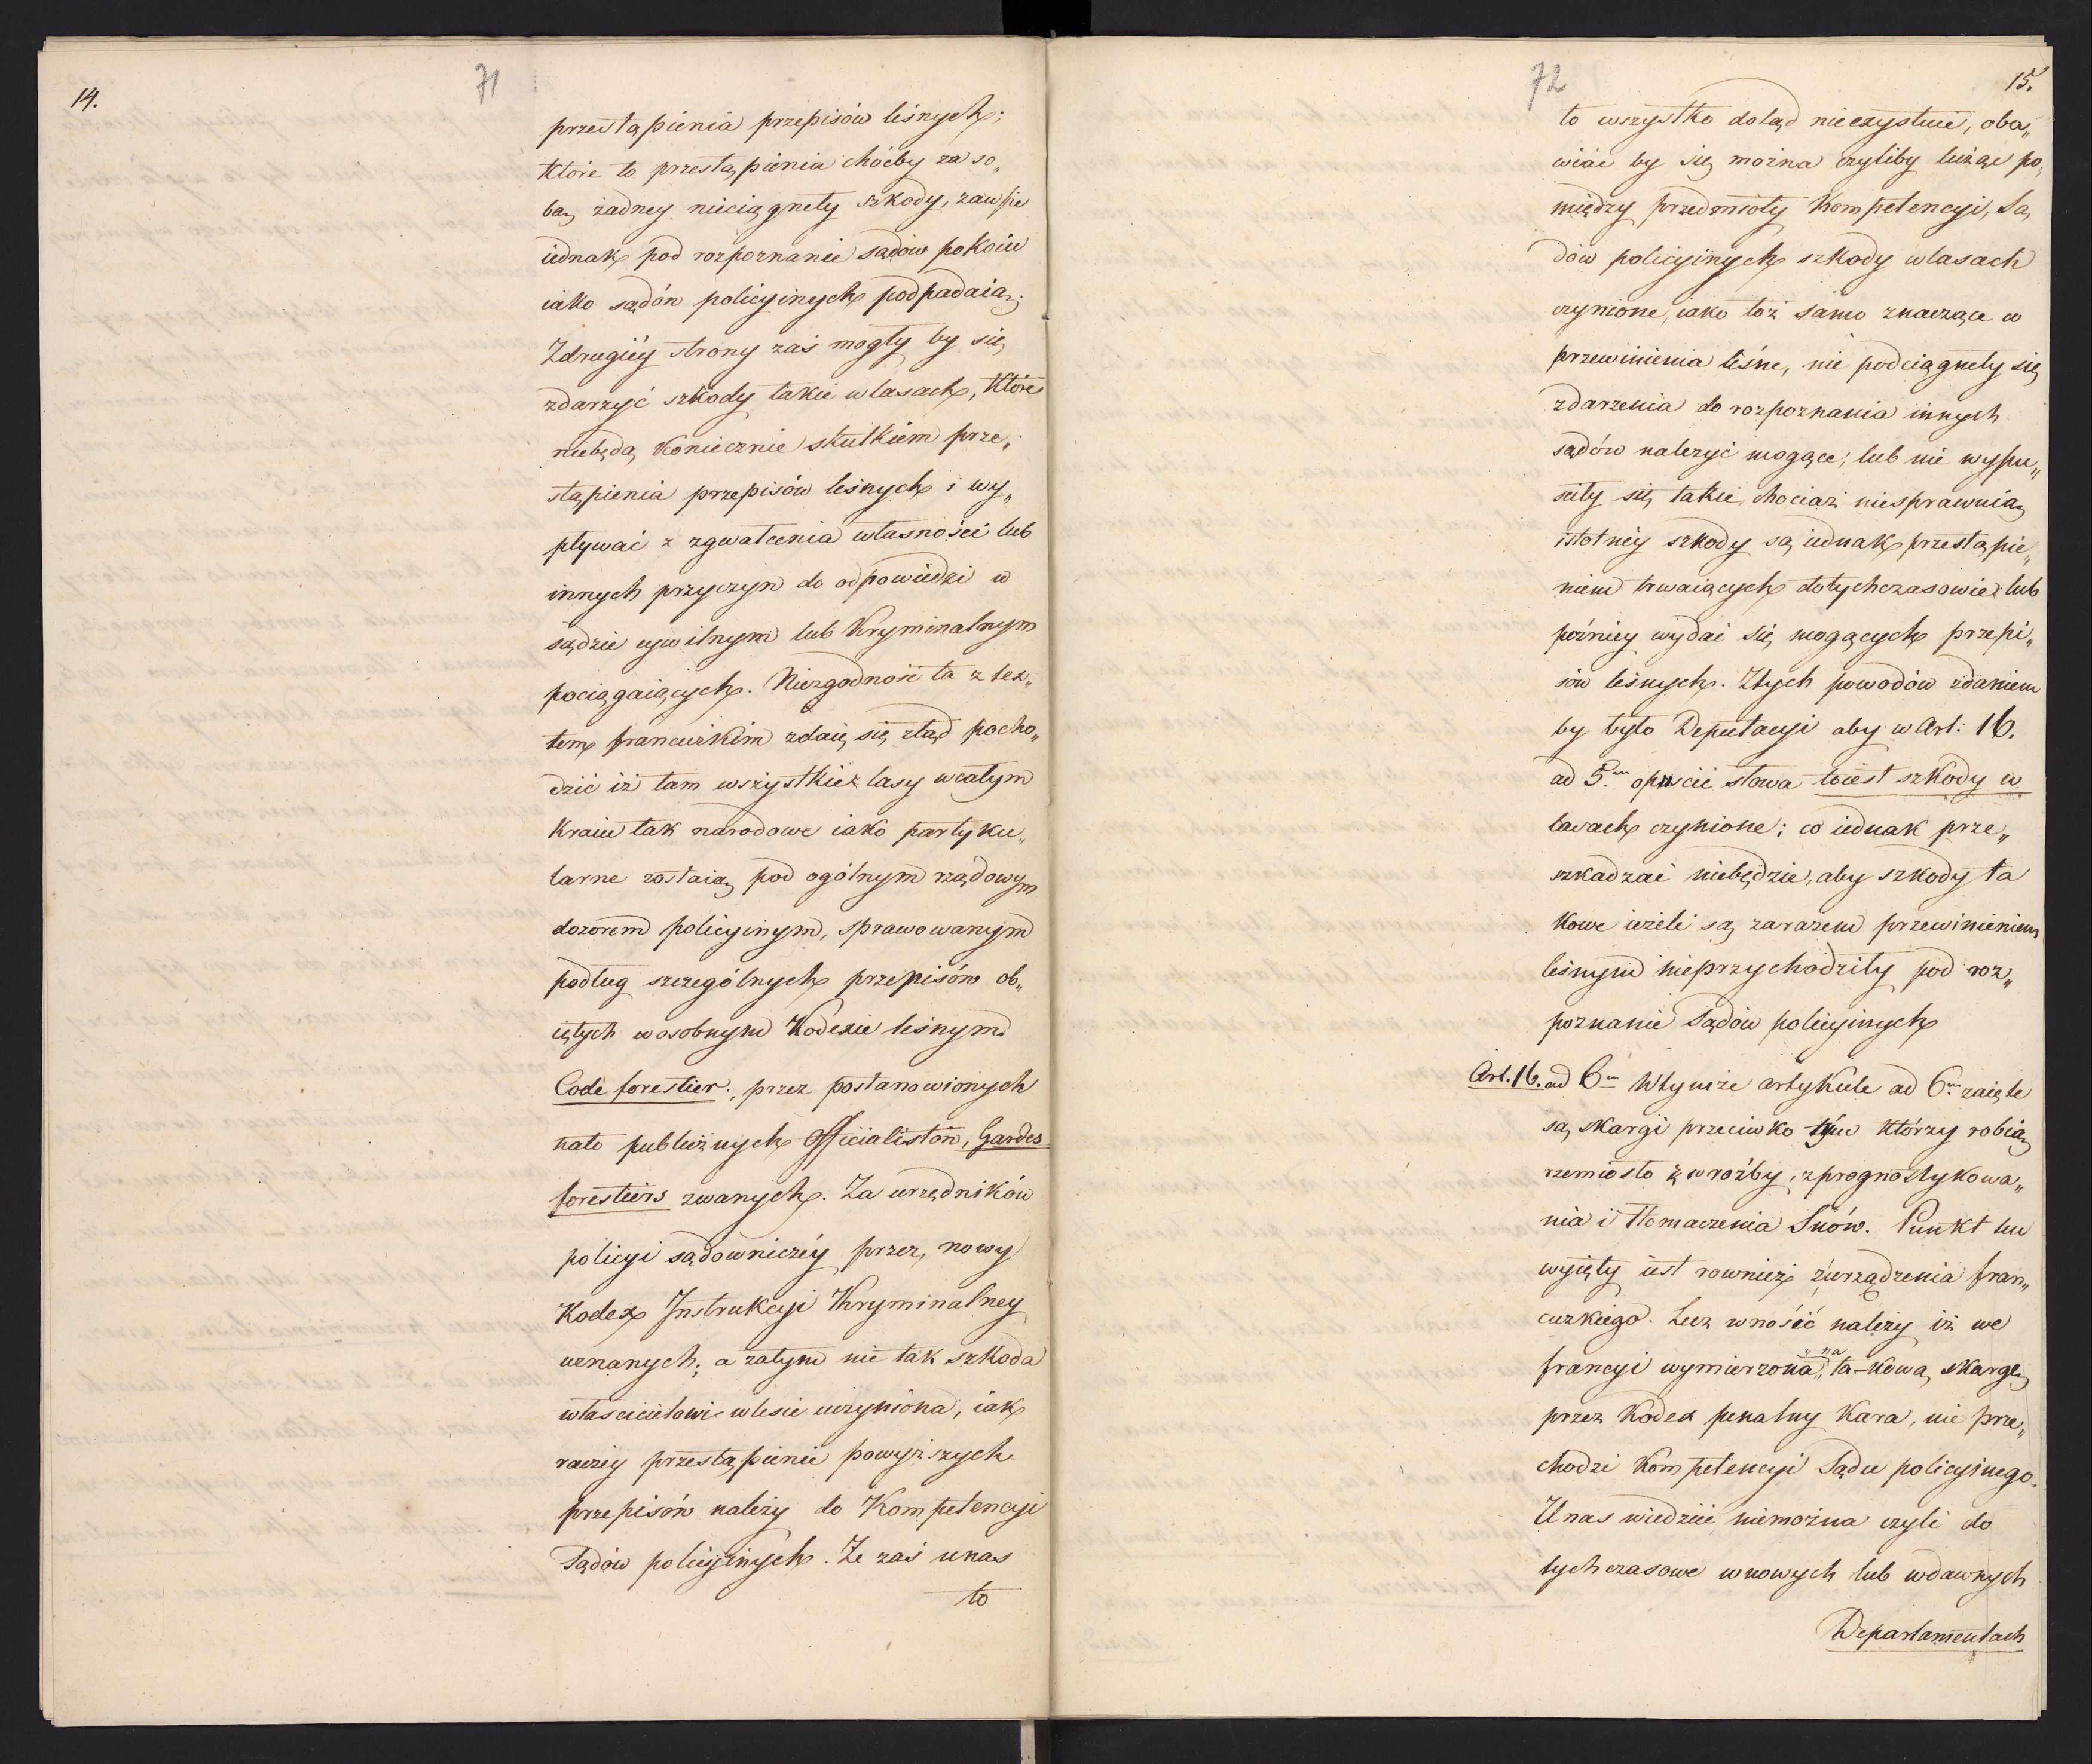 14.
71
przestąpienia przepisów leśnych;
które to przestąpienia choćby za so„
bą żadney nieciągnęły szkody, zawsze
iednak pod rozpoznanie sądów pokoiu
iako sądów policyinych podpadaią;
Zdrugiéy strony zaś mogły by się
zdarzyć szkody takie wlasach, które
niebędą koniecznie skutkiem prze„
stąpienia przepisów leśnych i wy„
pływać z zgwałcenia własności lub
innych przyczyn do odpowiedzi w
sądzie cywilnym lub Kryminalnym
pociągaiących. Niezgodność ta z tex„
tem francuzkim zdaie się ztąd pocho„
dzić iż tam wszystkie lasy wcałym
Kraiu tak narodowe iako partyku„
larne zostaią pod ogólnym rządowym
dozorem policyinym, sprawowanym
podług szczególnych przepisów ob„
iętych wosobnym Kodexie leśnym
Code forestier, przez postanowionych
nato publicznych Officialistów, Gardes
forestiers zwanych. Za urzędników
policyi sądowniczéy przez nowy
Kodex Instrukcyi Kryminalney
uznanych; a zatym nie tak szkoda
właścicielowi wlesie uczyniona, iak
raczey przestąpienie powyższych
przepisów należy do Kompetencyi
Sądów policyinych. Że zaś unas
to
72
15.
to wszystko dotąd nieexystuie, oba„
wiać by się można czyliby licząc po„
między przedmioty Kompetencyi, Są„
dów policyinych szkody wlasach
czynione, iako toż samo znaczące co
przewinienia leśne, nie podciągnęły się
zdarzenia do rozpoznania innych
sądów należyć mogące; lub nie wypu„
ściły się takie, chociaż niesprawuią
istotney szkody są iednak przestąpie„
niem trwaiących dotychczasowie lub
poźniey wydać się mogących przepi„
sów leśnych. Ztych powodów zdaniem
by było Deputacyi aby w Art: 16.
ad 5.m opuścić słowa toiest szkody w
lasach czynione; co iednak prze„
szkadzać niebędzie, aby szkody ta
kowe ieżeli są zarazem przewinieniem
leśnym nieprzychodziły pod roz„
poznanie Sądów policyinych
Art. 16. ad 6m Wtymże artykule ad 6m zaięte
są skargi przeciwko tym którzy robią
rzemiosło z wróżby, z prognostykowa„
nia i tłomaczenia Snów. Punkt ten
wyięty iest rownież z urządzenia fran„
cuzkiego. Lecz wnośić należy iż we
francyi wymierzona „na ta-kową skargę
przez Kodex penalny Kara, nie prze„
chodzi Kompetencyi Sądu policyinego.
Unas wiedzieć niemożna czyli do
tychczasowe wnowych lub wdawnych
Departamentach